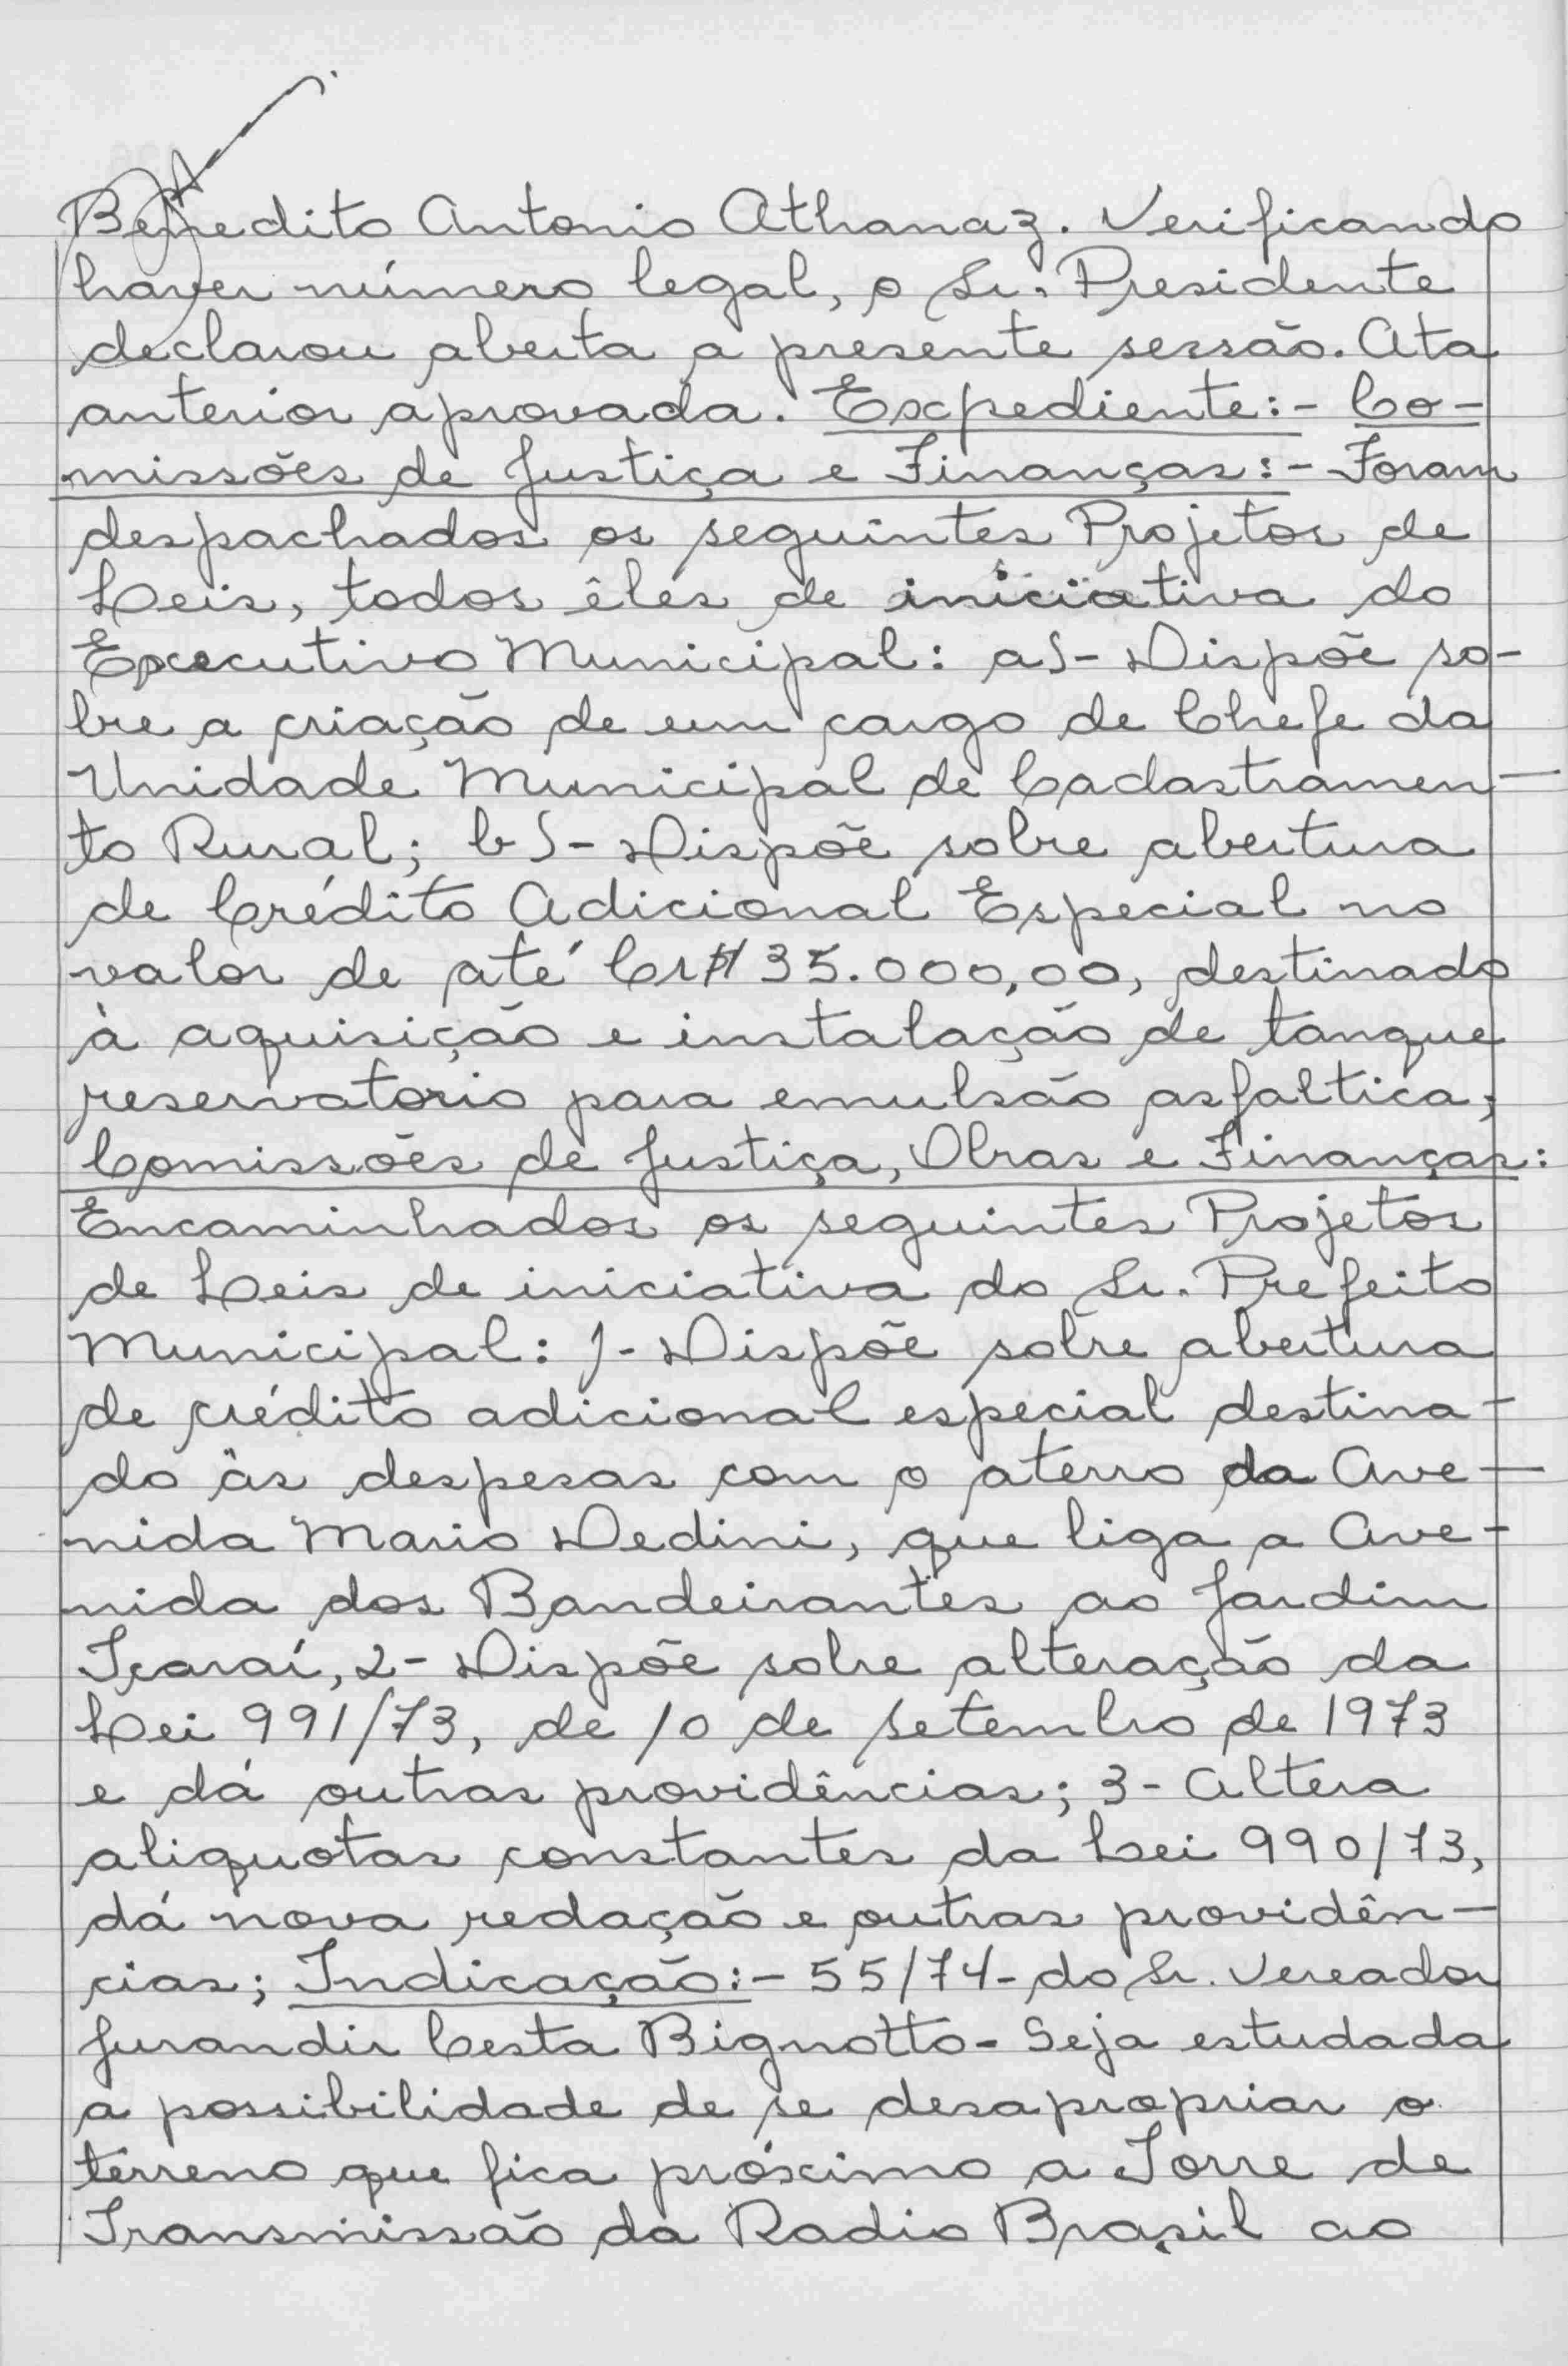 Benedito Antonio Athanaz. Verificando
haver número legal, o Sr. Presidente
declarou aberta a presente sessão. Ata
anterior aprovada. Expediente:- Co-
missões de Justiça e Finanças:- Foram
despachados os seguintes Projetos de
Leis, todos êles de iniciativa do
Executivo Municipal: a)- Dispõe so-
bre a criação de um cargo de Chefe da
Unidade Municipal de Cadastramen-
to Rural; b)- Dispõe sobre abertura
de Crédito Adicional Especial no
valor de até Cr$ 35.000,00, destinado
à aquisição e instalação de tanque
reservatorio para emulsão asfaltica;
Comissões de Justiça, Obras e Finanças:
Encaminhados os seguintes Projetos
de Leis de iniciativa do Sr. Prefeito
Municipal: 1- Dispõe sobre abertura
de crédito adicional especial destina-
do às despesas com o aterro da Ave-
nida Mario Dedini, que liga a Ave-
nida dos Bandeirantes ao Jardim
Icaraí, 2- Dispõe sobre alteração da
Lei 991/73, de 10 de setembro de 1973
e dá outras providências; 3- Altera
aliquotas constantes da Lei 990/73,
dá nova redação e outras providên-
cias; Indicação:- 55/74- do Sr. Vereador
Jurandir Cesta Bignotto- Seja estudada
a possibilidade de se desapropriar o
terreno que fica próximo a Torre de
Transmissão da Radio Brasil ao